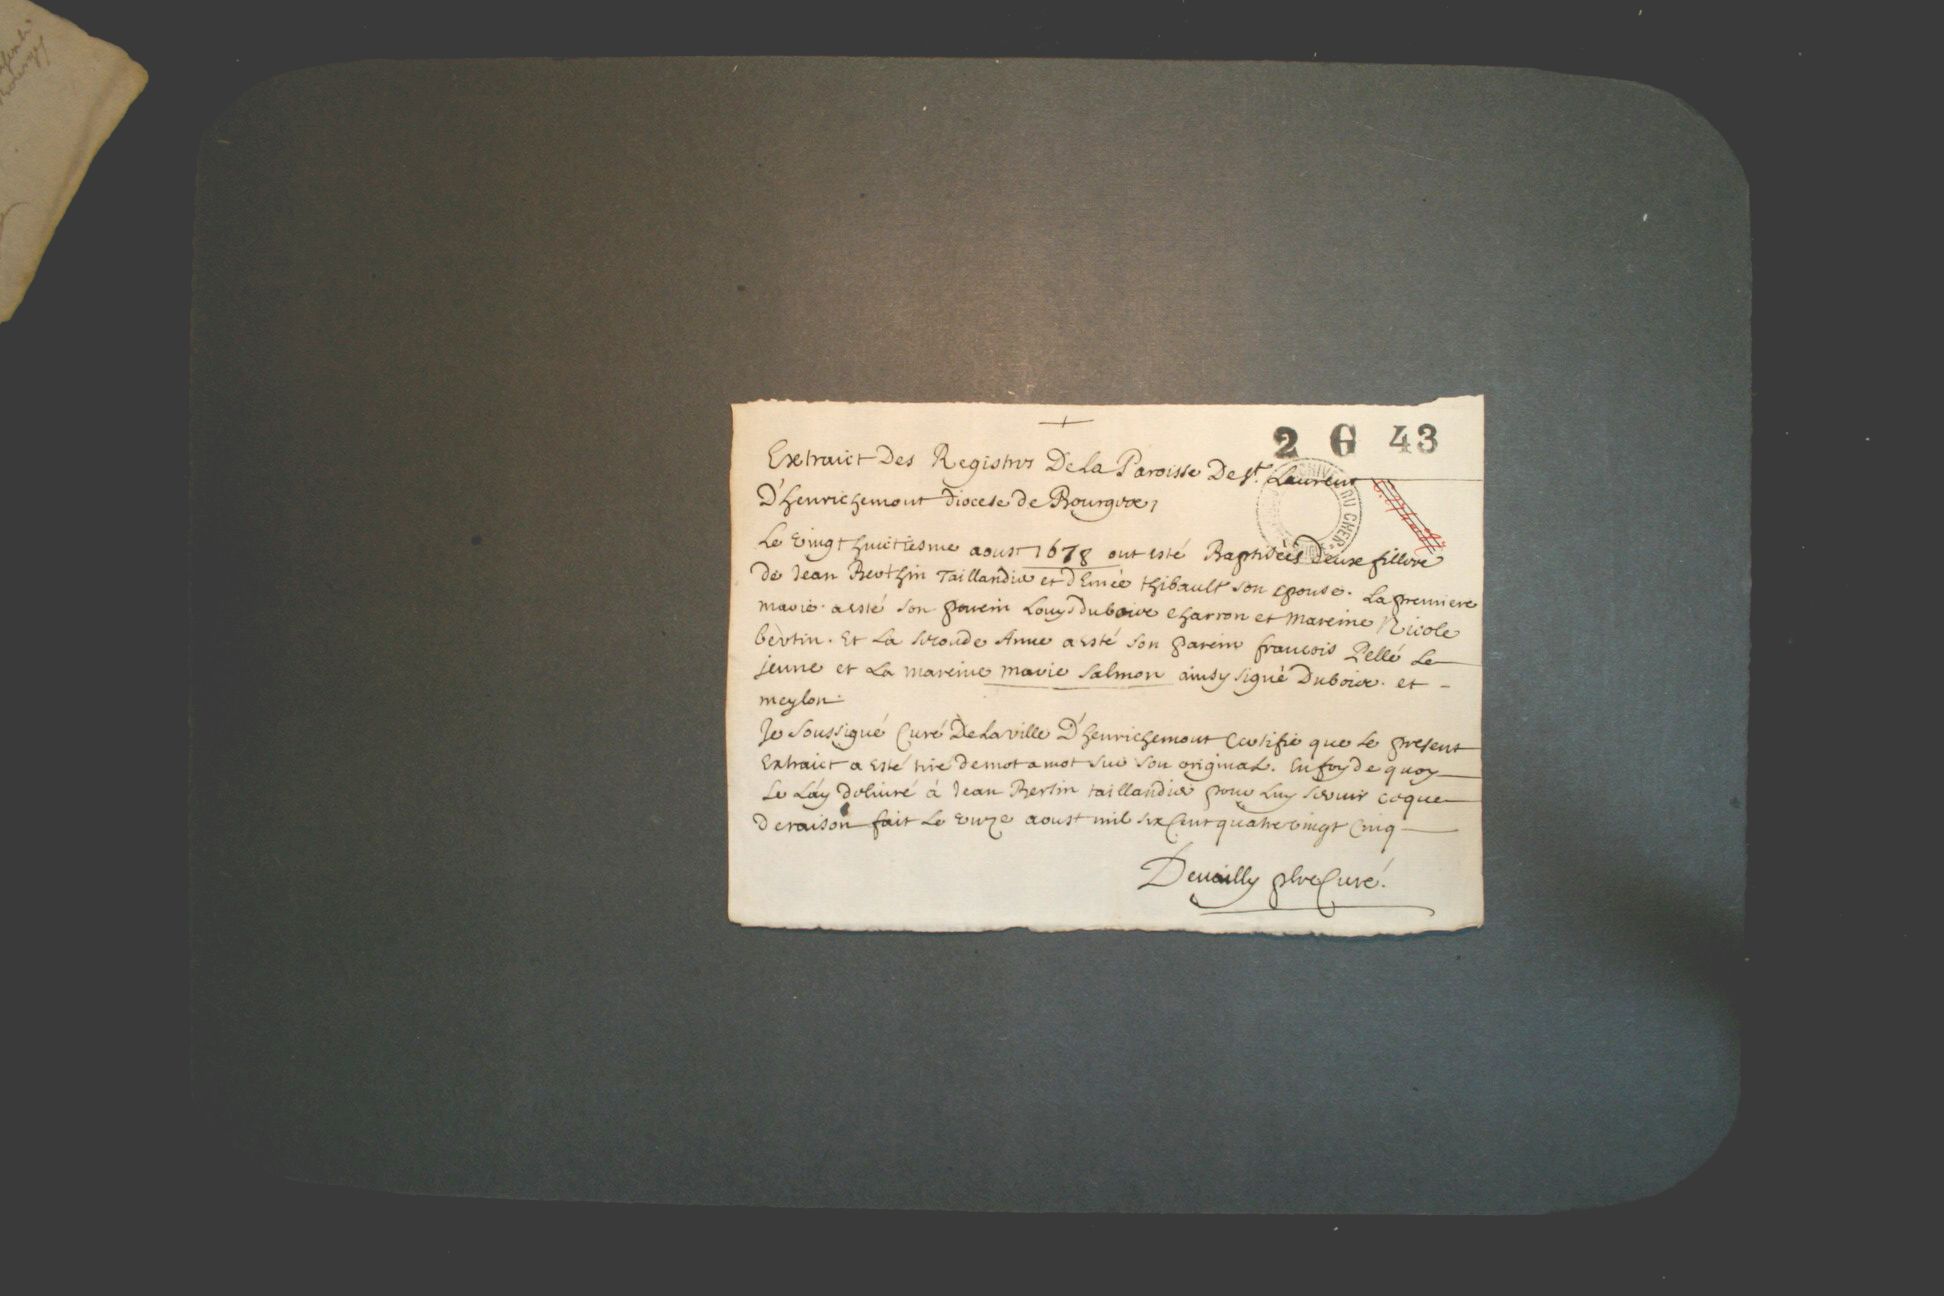 2 G 43
Extraict Des Registres De La Paroisse De St. Laurent
D'henrichemont diocese de Bourges,
Le vingt huictiesme aoust 1678 ont esté Baptisées deux filles
de Jean Berthin Taillandier et d'Emée thibault son epouse. La premiere
marie a esté son parein Louys duboix charron et mareine Nicole
bertin. Et La seconde Anne a esté son parein francois Pellé Le
jeune et La mareine marie salmon ainsy signé Duboix. et -
meylon.
Je soussigné Curé De La ville D'henrichemont Certifie que Le present
Extraict a esté tiré de mot a mot sur son original. En foy de quoy
Le Láy deliuré à Jean Bertin taillandier pour Luy seruir ceque
De raison fait Le onze aoust mil six Cent quatre vingt Cinq
Deuailly pbre Curé.